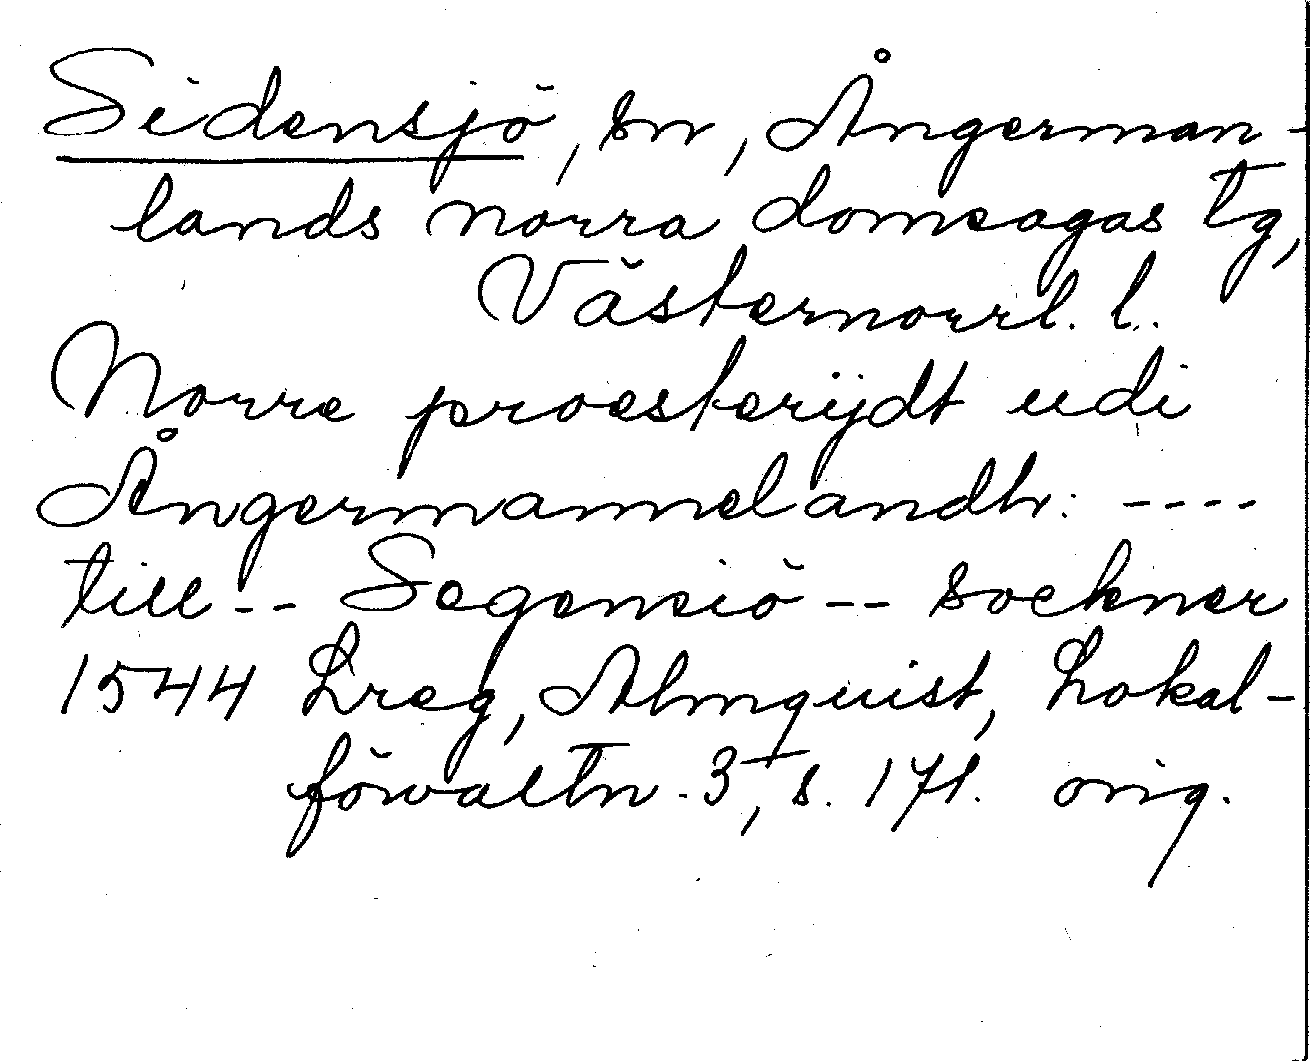 Sidensjö, sn, Ångerman-
lands norra domsagas tg,
Västernorrl. l.
Norre proesterijdt udi
Ångermannelandh: ----
till -- Segensiö -- sockner
1544 Lreg, Almquist, Lokal-
förvaltn. 3, s. 171. orig.